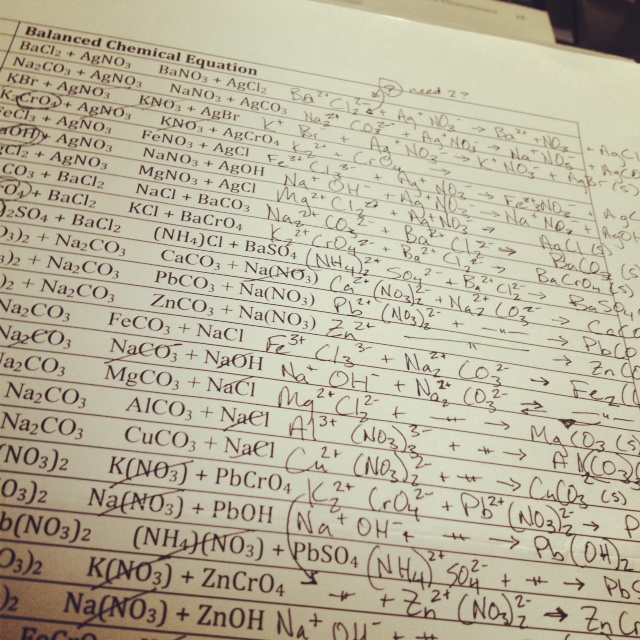 Balanced Chemical Equation
need 2?
BaCl₂ + AgNO₃ BaNO₃ + AgCl₂ Ba²⁺Cl₂²⁻ + Ag⁺NO₃⁻ → Ba²⁺ NO₃⁻ + AgCl
Na₂CO₃ + AgNO₃ NaNO₃ + AgCO₃ Na₂⁺ CO₃²⁻ + Ag⁺NO₃⁻ → Na⁺NO₃⁻
KBr + AgNO₃ KNO₃ + AgBr K⁺ Br⁻ + Ag⁺NO₃⁻ → K⁺NO₃⁻ + AgBr (s)
K₂CrO₄ + AgNO₃ KNO₃ + AgCrO₄ K₂²⁺ CrO₄²⁻ + Ag⁺NO₃⁻
FeCl₃ + AgNO₃ FeNO₃ + AgCl Fe³⁺Cl₃³⁻ + Ag⁺NO₃⁻ → Fe³⁺NO₃⁻
OH) + AgNO₃ NaNO₃ + AgOH Na⁺ OH⁻ + Ag⁺NO₃⁻ → Na⁺NO₃⁻ + AgOH
+ AgNO₃ MgNO₃ + AgCl Mg²⁺Cl₂²⁻ + Ag⁺NO₃⁻ → AgCl (s)
CO₃ + BaCl₂ NaCl + BaCO₃ Na₂²⁺ CO₃²⁻ + Ba²⁺Cl₂²⁻ → BaCO₃ (s)
O₄) + BaCl₂ KCl + BaCrO₄ K₂²⁺ CrO₄²⁻ + Ba²⁺Cl₂²⁻ → BaCrO₄ (s)
)₂SO₄ + BaCl₂ (NH₄)Cl + BaSO₄ (NH₄)₂²⁺ SO₄²⁻ + Ba²⁺Cl₂²⁻ → BaSO₄
)₂ + Na₂CO₃ CaCO₃ + Na(NO₃) Ca²⁺(NO₃)₂²⁻ + Na₂²⁺CO₃²⁻ → CaCO
)₂ + Na₂CO₃ PbCO₃ + Na(NO₃) Pb²⁺(NO₃)₂²⁻ + —"— → PbCO
)₂ + Na₂CO₃ ZnCO₃ + Na(NO₃) Zn²⁺ —"— → ZnCO
Na₂CO₃ FeCO₃ + NaCl Fe³⁺ Cl₃³⁻ + Na₂²⁺ CO₃²⁻ → Fe₂(
Na₂CO₃ NaCO₃ + NaOH Na⁺ OH⁻ + Na₂²⁺ CO₃²⁻ ⇄ —"—
Na₂CO₃ MgCO₃ + NaCl Mg²⁺Cl₂²⁻ + —"— → MgCO₃ (s)
Na₂CO₃ AlCO₃ + NaCl Al³⁺ (NO₃)₃³⁻ + —"— → Al(CO₃)
Na₂CO₃ CuCO₃ + NaCl Cu²⁺ (NO₃)₂²⁻ + —"— → CuCO₃ (s)
(NO₃)₂ K(NO₃) + PbCrO₄ K₂²⁺ CrO₄²⁻ + Pb²⁺(NO₃)₂²⁻ → P
O₃)₂ Na(NO₃) + PbOH Na⁺ OH⁻ + —"— → Pb(OH)₂
b(NO₃)₂ (NH₄)(NO₃) + PbSO₄ (NH₄)₂²⁺ SO₄²⁻ + —"— → PbS
O₃)₂ K(NO₃) + ZnCrO₄ —"— + Zn²⁺(NO₃)₂²⁻ → ZnC
)₂ Na(NO₃) + ZnOH Na⁺ OH⁻ + —"—
FeCrO